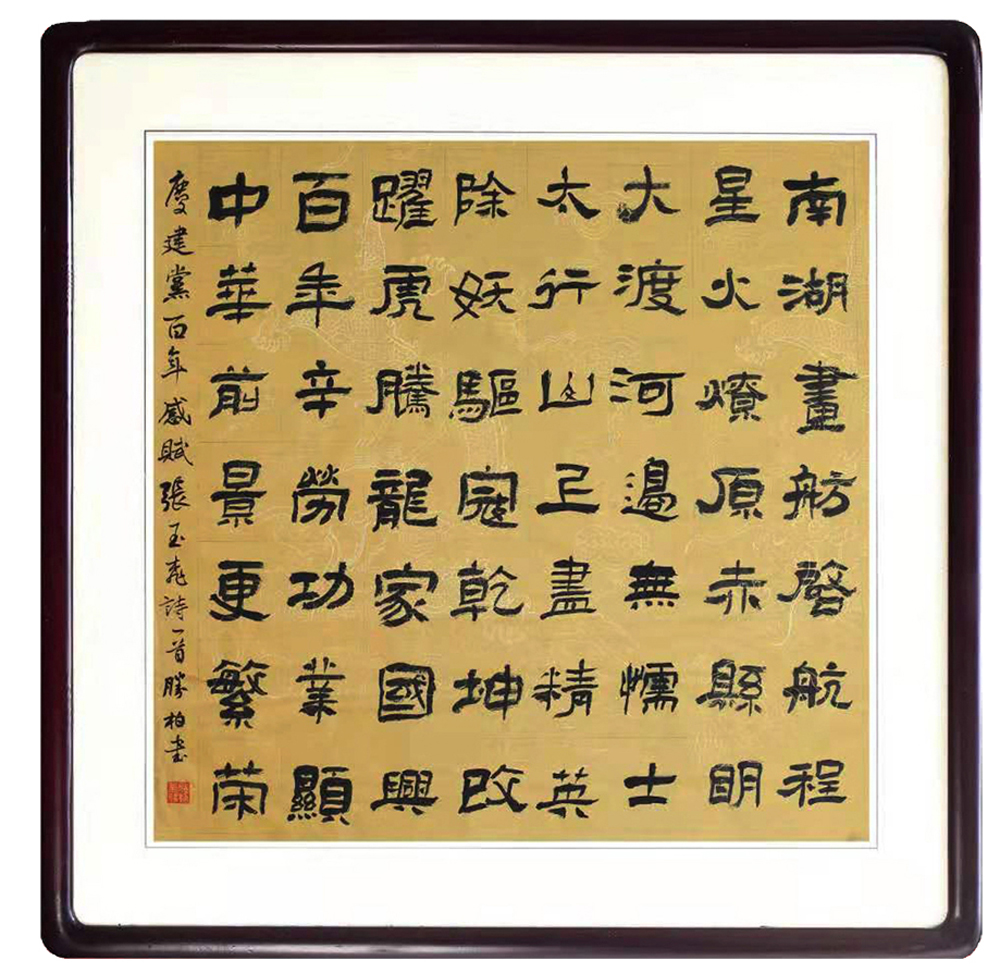 南湖畫舫啓航程
星火燎原赤縣明
大渡河邊無懦士
太行山上盡精英
除妖驅寇乾坤改
躍虎騰龍家國興
百年辛勞功業顯
中華前景更繁荣
慶建黨百年感賦張玉彪詩一首勝柏書